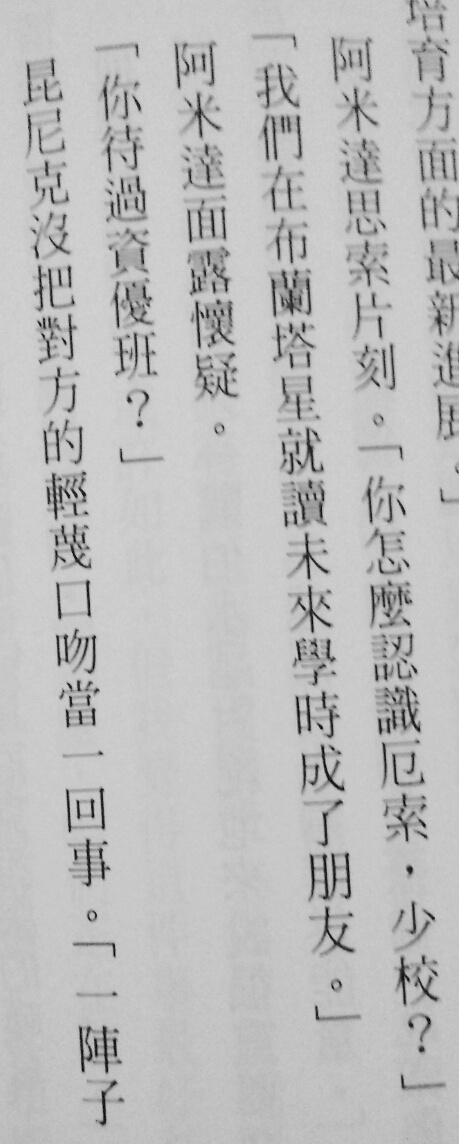 培育方面的最新進展。」
阿米達思索片刻。「你怎麼認識厄索，少校？」
「我們在布蘭塔星就讀未來學時成了朋友。」
阿米達面露懷疑。
「你待過資優班？」
昆尼克沒把對方的輕蔑口吻當一回事。「一陣子